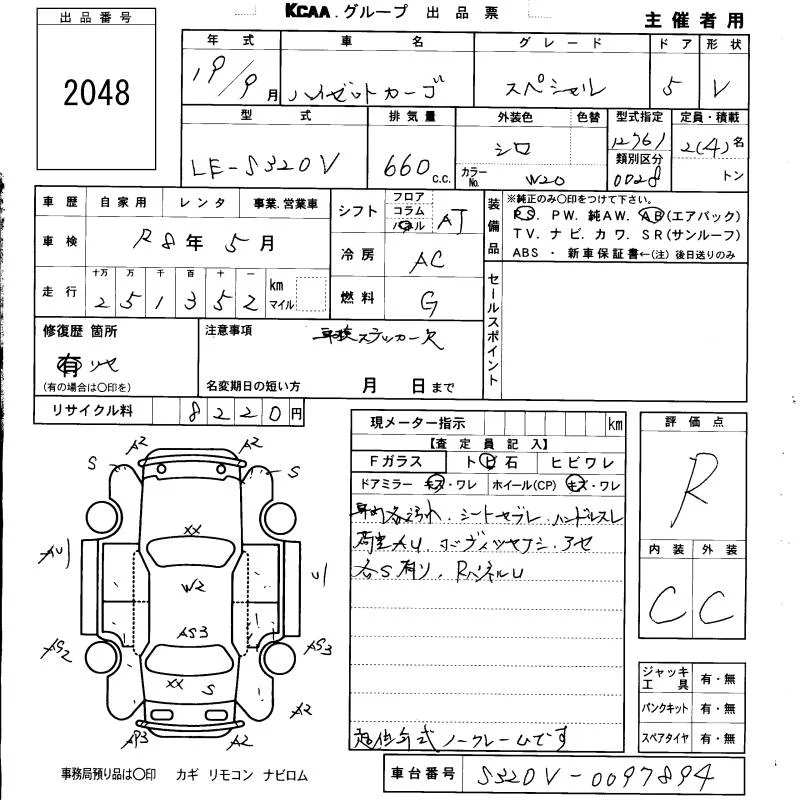 KCAA.グループ 出品票
主催者用
出品番号
2048
年式 車名 グレード ドア 形状
19/9月 ハイゼットカーゴ スペシャル 5 V
型式 排気量 外装色 色替 型式指定 定員・積載
LE-S320V 660 c.c. シロ 12761 2(4)名
カラーNo. W20 類別区分 0028 トン
車歴 自家用 レンタ 事業.営業車
車検 R8年5月
走行 十万 万 千 百 十 一 km マイル
251352
シフト フロア コラム パネル AT
冷房 AC
燃料 G
装備品 ※純正のみ〇印をつけて下さい。
PS. PW. 純AW. AB(エアバック)
TV. ナビ. カワ. SR(サンルーフ)
ABS ・ 新車保証書←(注) 後日送りのみ
セールスポイント
修復歴 箇所
有 リヤ
(有の場合は〇印を)
注意事項 車検ステッカー欠
名変期日の短い方 月 日まで
リサイクル料 8220円
現メーター指示 km
【査定員記入】
Fガラス トビ石 ヒビワレ
ドアミラー キズ・ワレ ホイール(CP) キズ・ワレ
車内各汚れ. シートヤブレ. ハンドルスレ
荷室AU.
各S有り. RパネルU
ノークレームです
評価点
R
内装 外装
C C
ジャッキ工具 有・無
パンクキット 有・無
スペアタイヤ 有・無
A2 A2
S S
XX
AU U
W2
AS3
AS2 AS3
XX S
A2
AP3 A2
事務局預り品は〇印 カギ リモコン ナビロム
車台番号 S320V-0097894